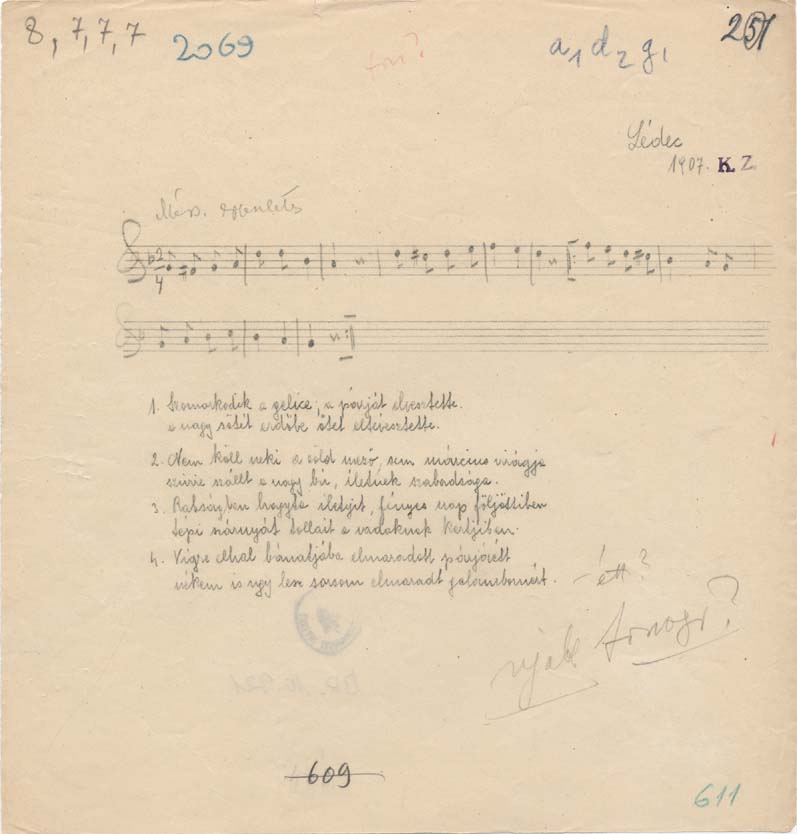 8, 7, 7, 7
2069
a1 d2 g1
251
Lédec
1907. K. Z.
2
4
1. Szomorkodik a gelice, a párját elvesztette.
a nagy sötét erdőbe őtet eltévesztette.
2. Nem köll neki a zöld mező, sem március virágja
szürre szállt a nagy bú, életinek szabadsága.
3. Rabságben hagyta életyit, fényes nap följöttiben
tépi szárnyát tollait a vadaknak kertjiben.
4. Vígre elhal bánatjába elmaradott párjáiétt
nékem is ugy lesz sorsom elmaradt galambomért.
-étt?
609
611